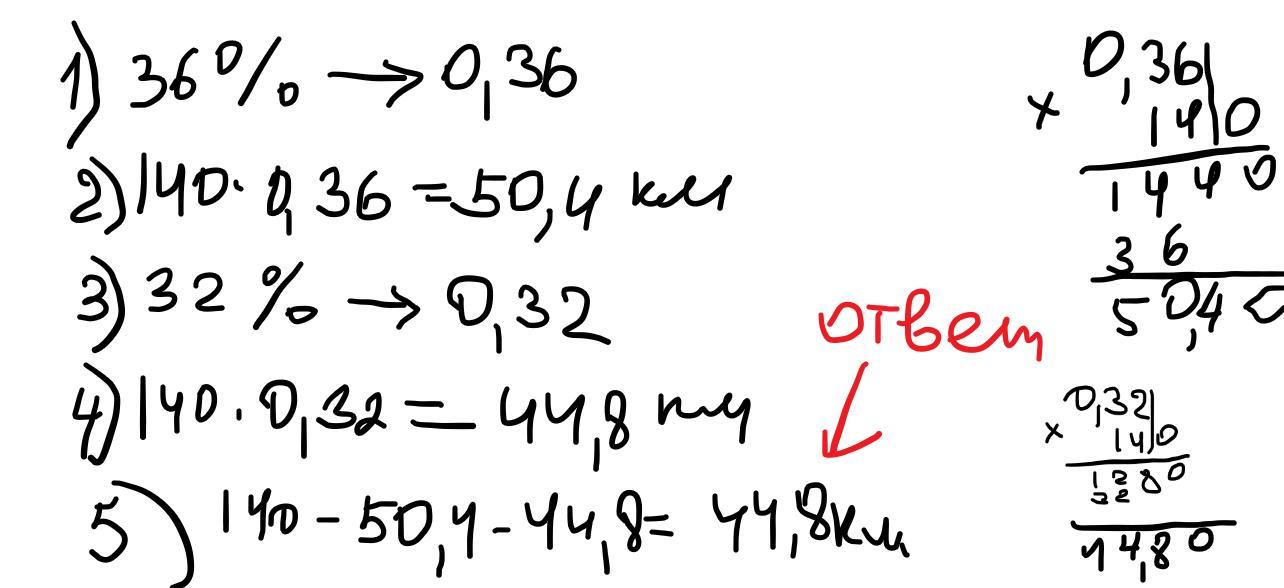 1) 36% → 0,36
2) 140 · 0,36 = 50,4 км
3) 32% → 0,32
4) 140 · 0,32 = 44,8 км
5) 140 - 50,4 - 44,8 = 44,8 км
ответ
0,36
× 140
1440
36
50,40
0,32
× 140
1280
32
44,80